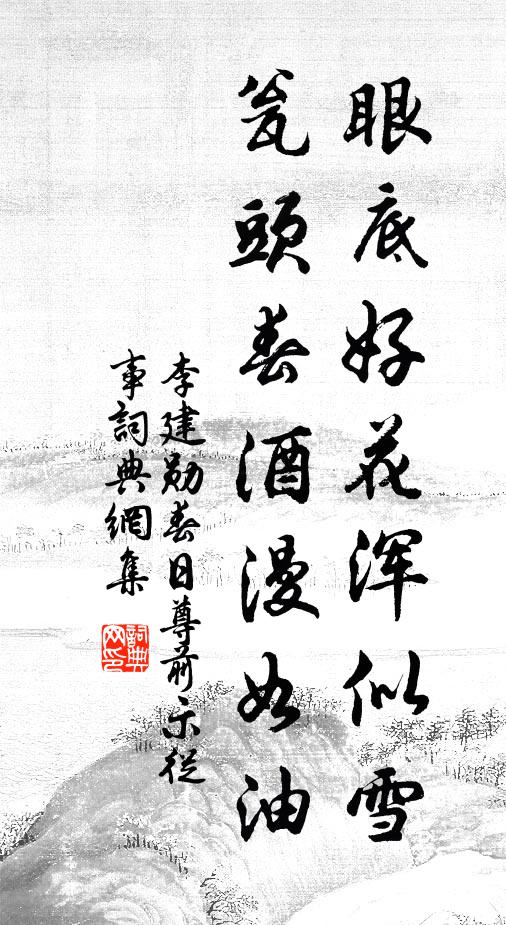 眼底好花浑似雪
瓮頭春酒漫如油
李建勋春日尊前示從
事詞典網集
詞典
网印